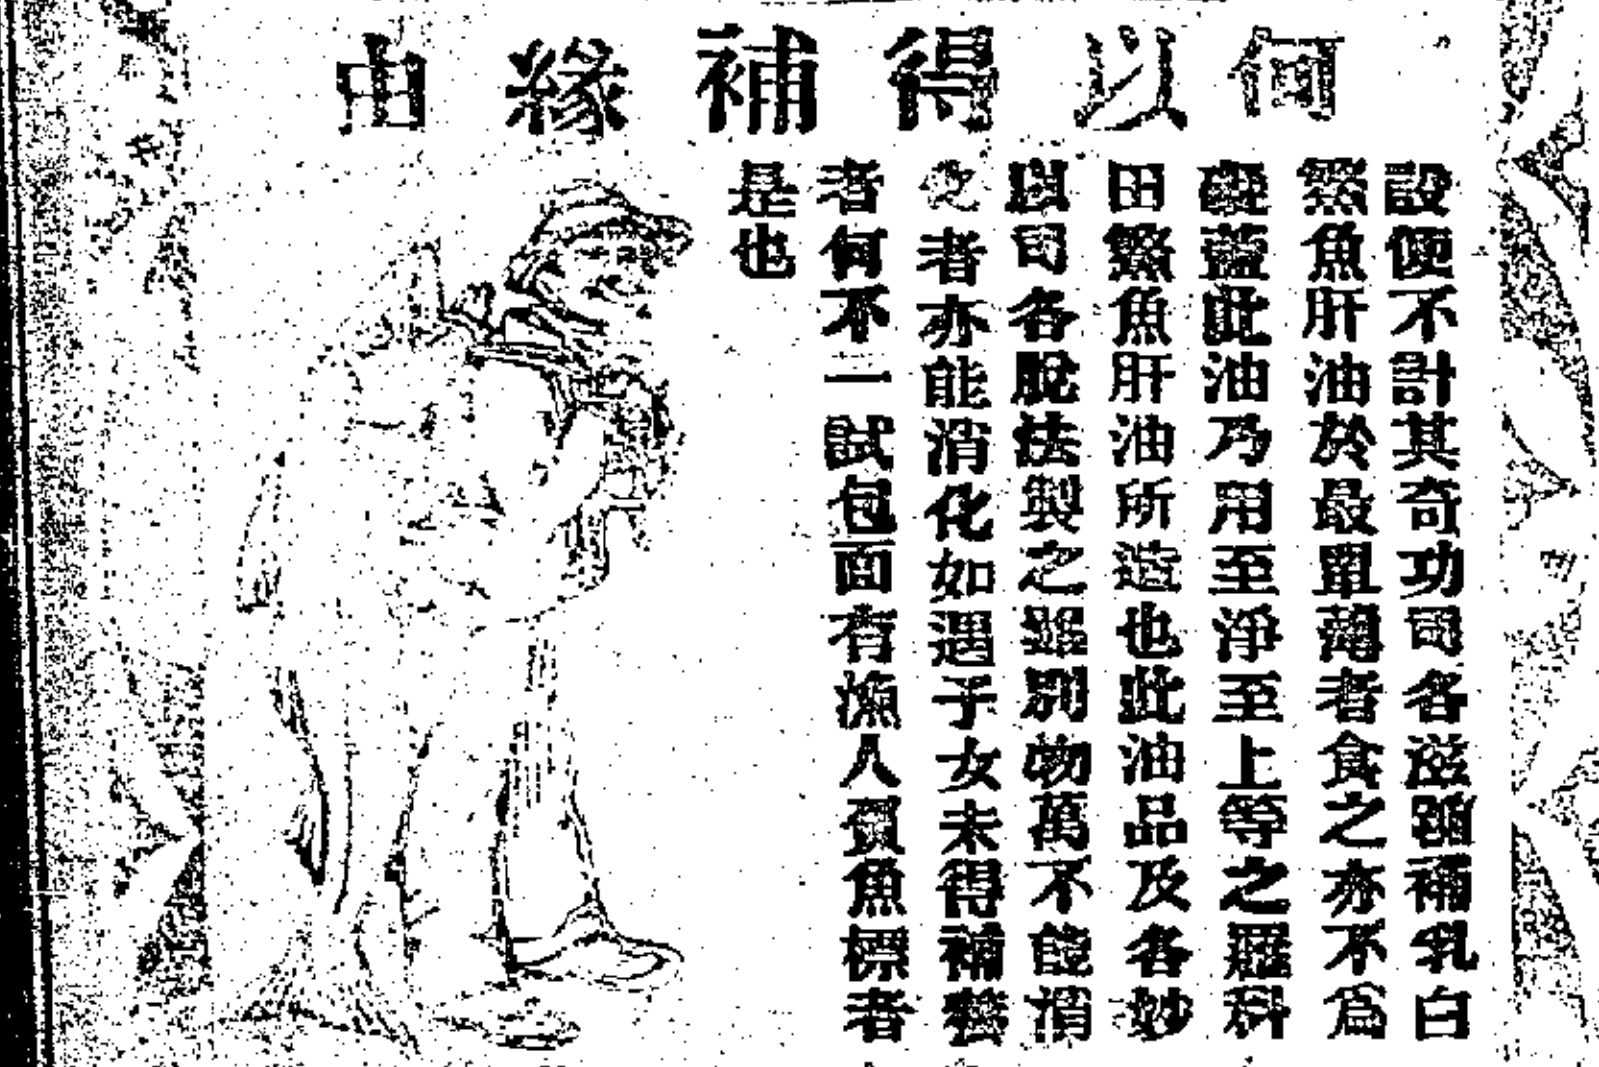 何以得補緣由
設便不計其奇功司各滋踏補乳白
鰵魚肝油於最單薄者食之亦不爲
礙蓋此油乃用至淨至上等之羅科
田鰵魚肝油所造也此油品及各妙
以司各脫法製之雖別物萬不能消
化者亦能消化如遇子女未得補養
者何不一試包面有漁人負魚標者
是也